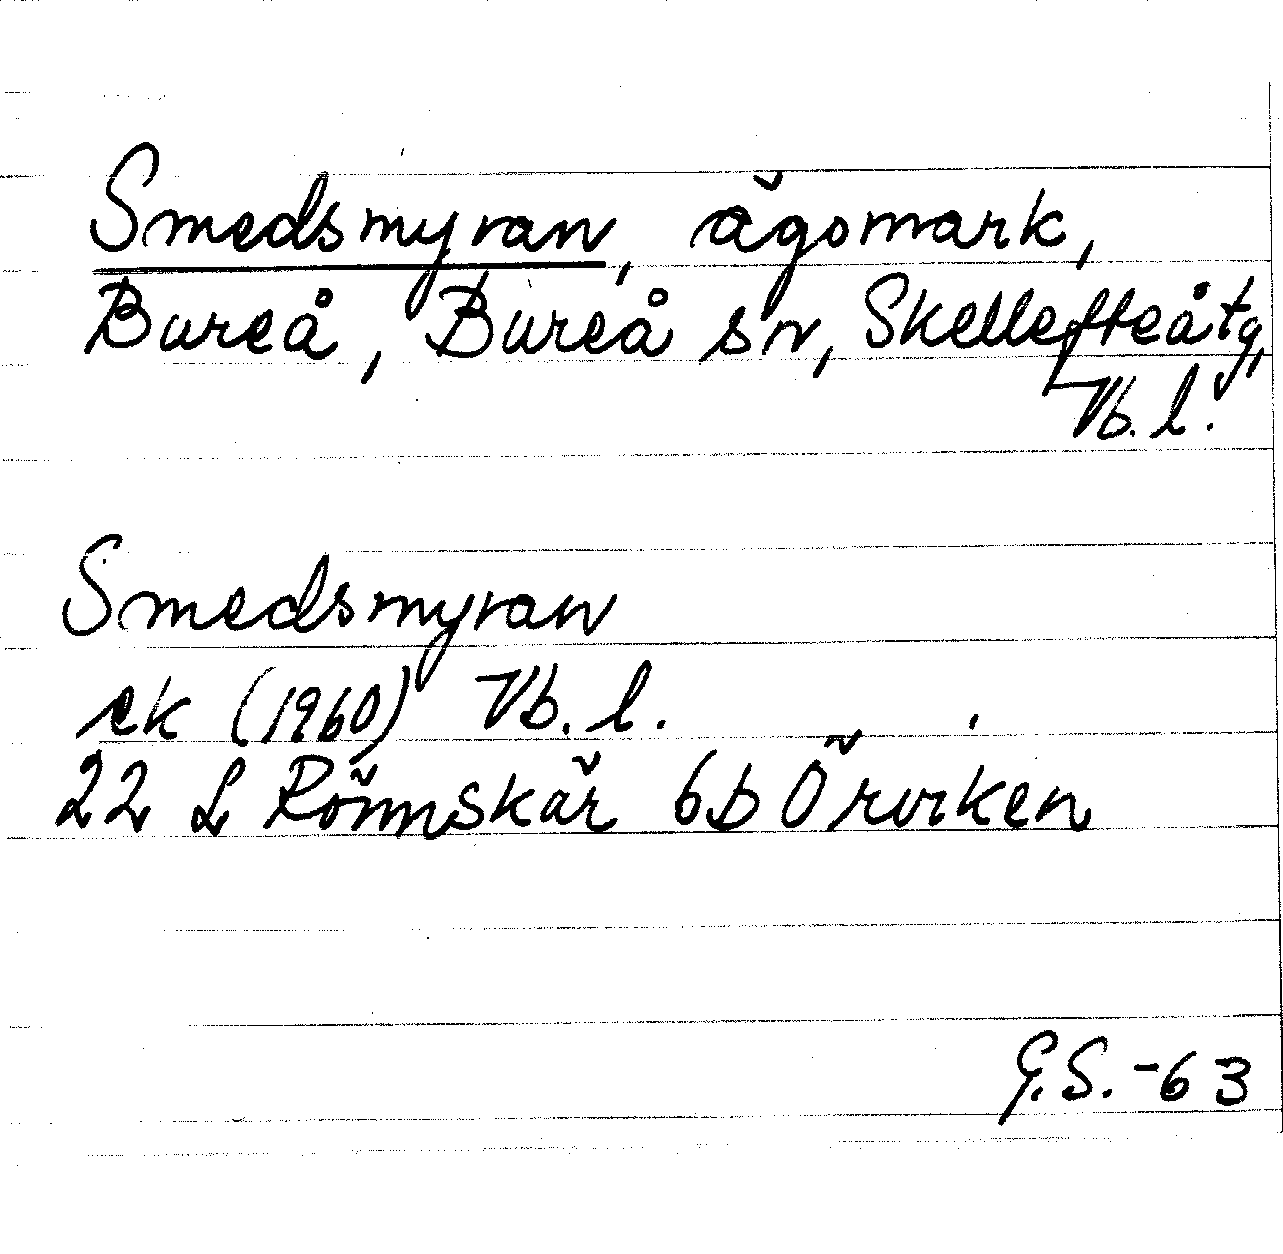 Smedsmyran, ägomark,
Bureå, Bureå sn, Skellefteå tg,
Vb. l.
Smedsmyran
ek (1960) Vb. l.
22 L Rönnskär 6b Örviken
G.S.-63